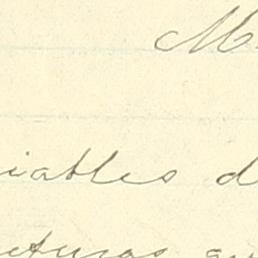 M
iables d
eturas qu